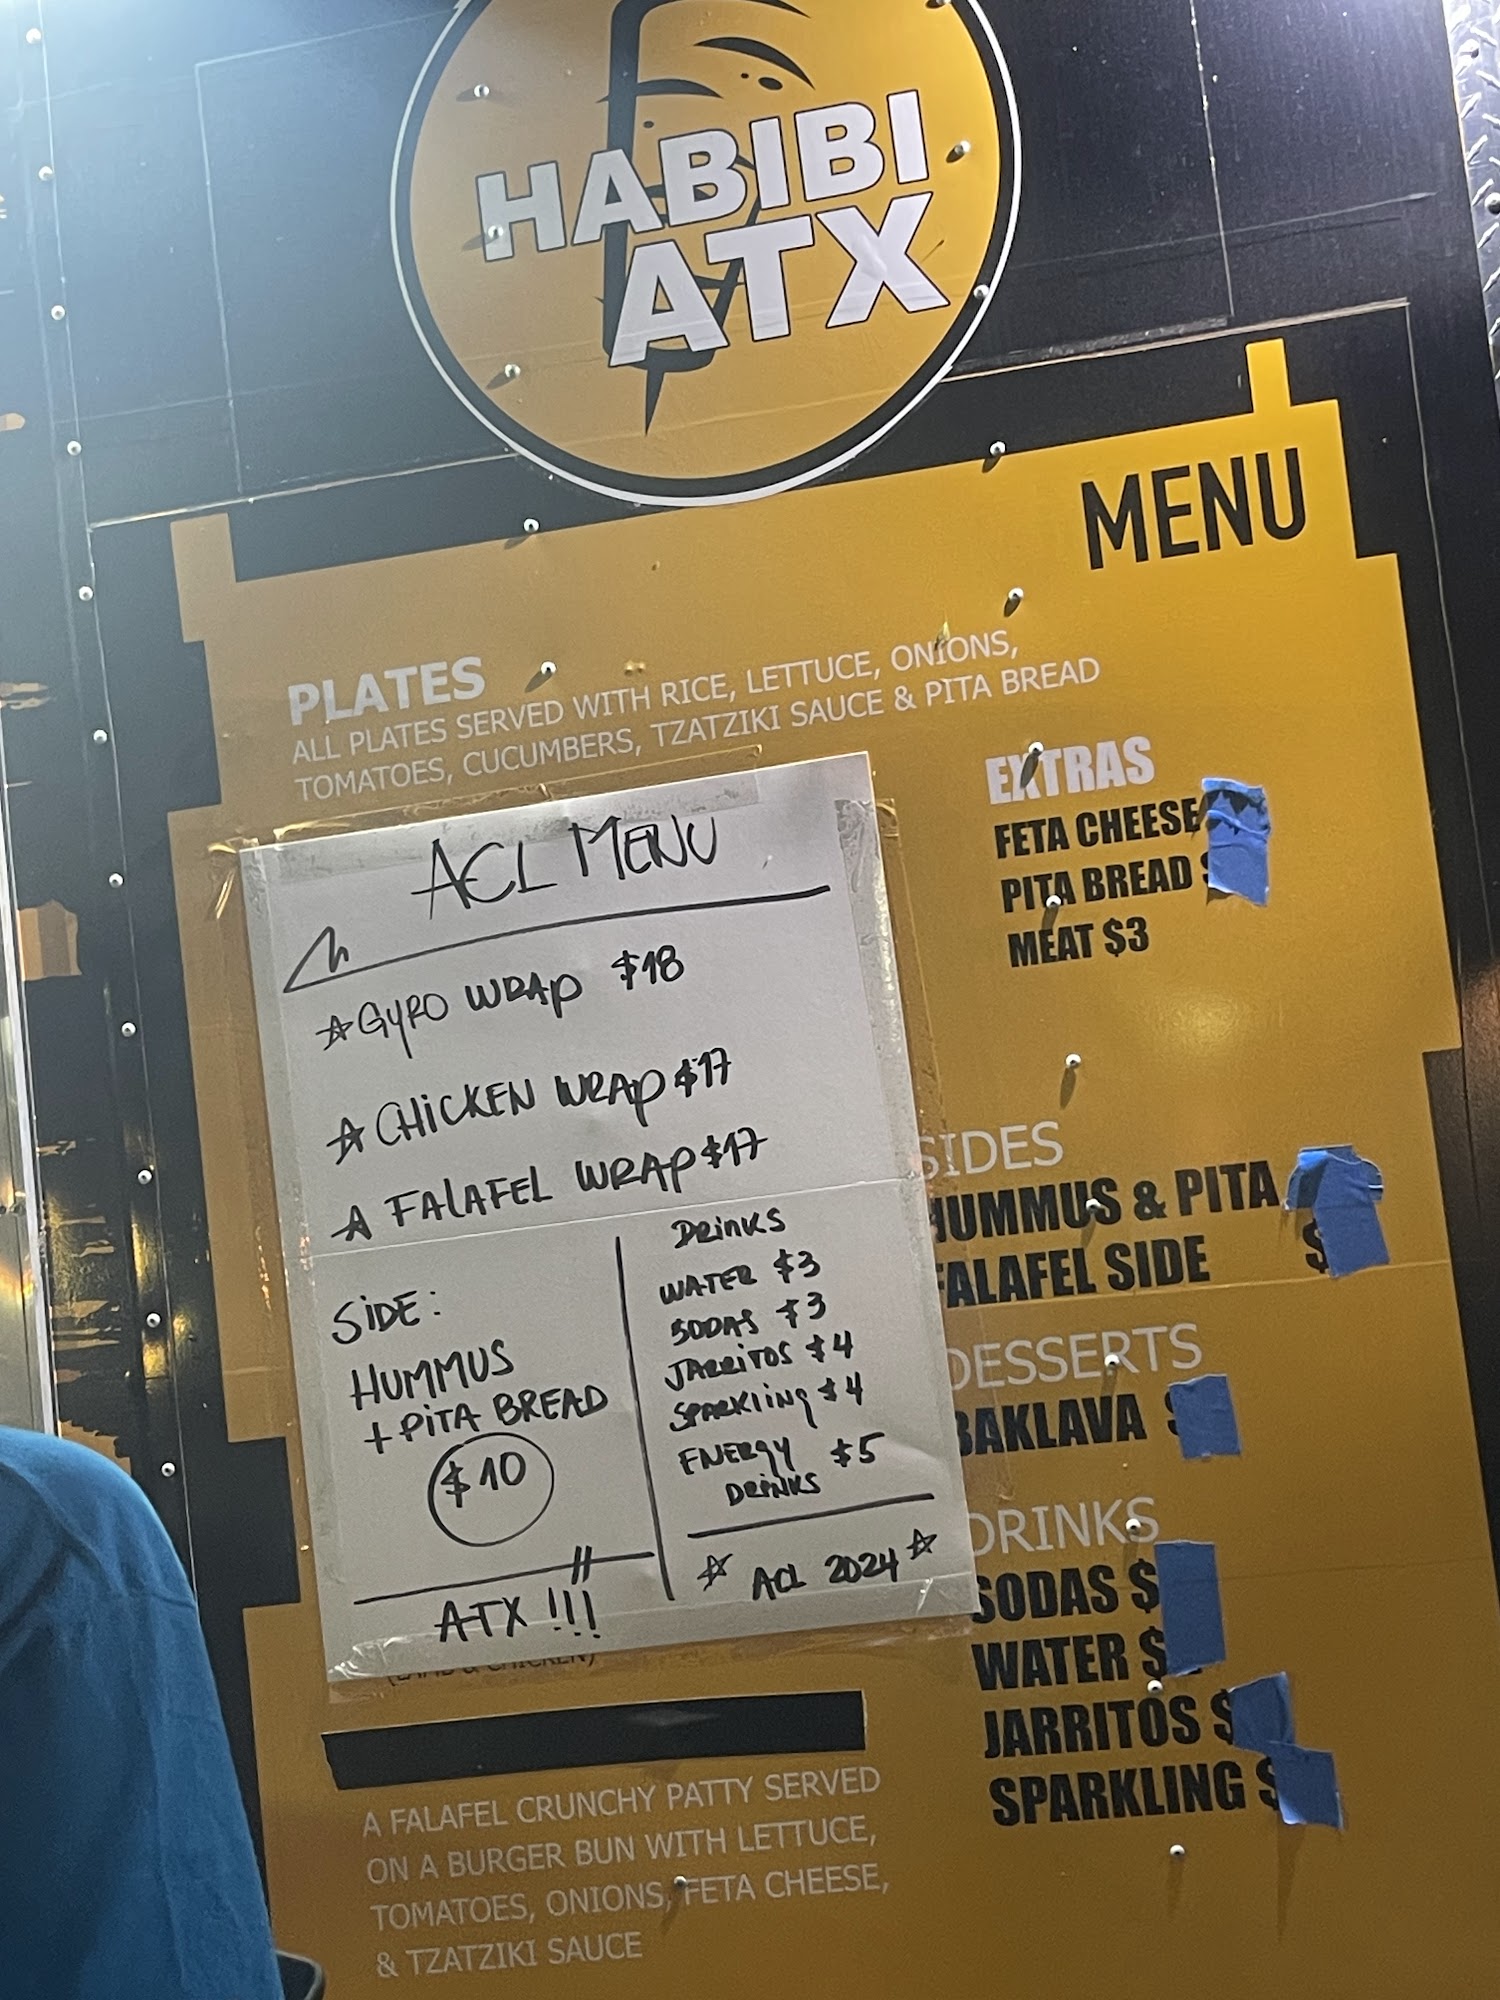 HABIBI
ATX
MENU
PLATES
ALL PLATES SERVED WITH RICE, LETTUCE, ONIONS,
TOMATOES, CUCUMBERS, TZATZIKI SAUCE & PITA BREAD
ACL MENU
GYRO WRAP $18
CHICKEN WRAP $17
FALAFEL WRAP $17
SIDE:
HUMMUS
+ PITA BREAD
$10
ATX !!!
DRINKS
WATER $3
SODAS $3
JARRITOS $4
SPARKLING $4
ENERGY $5
DRINKS
ACL 2024
(LAMB & CHICKEN)
A FALAFEL CRUNCHY PATTY SERVED
ON A BURGER BUN WITH LETTUCE,
TOMATOES, ONIONS, FETA CHEESE,
& TZATZIKI SAUCE
EXTRAS
FETA CHEESE
PITA BREAD $
MEAT $3
SIDES
HUMMUS & PITA
FALAFEL SIDE $
DESSERTS
BAKLAVA $
DRINKS
SODAS $
WATER $
JARRITOS $
SPARKLING $